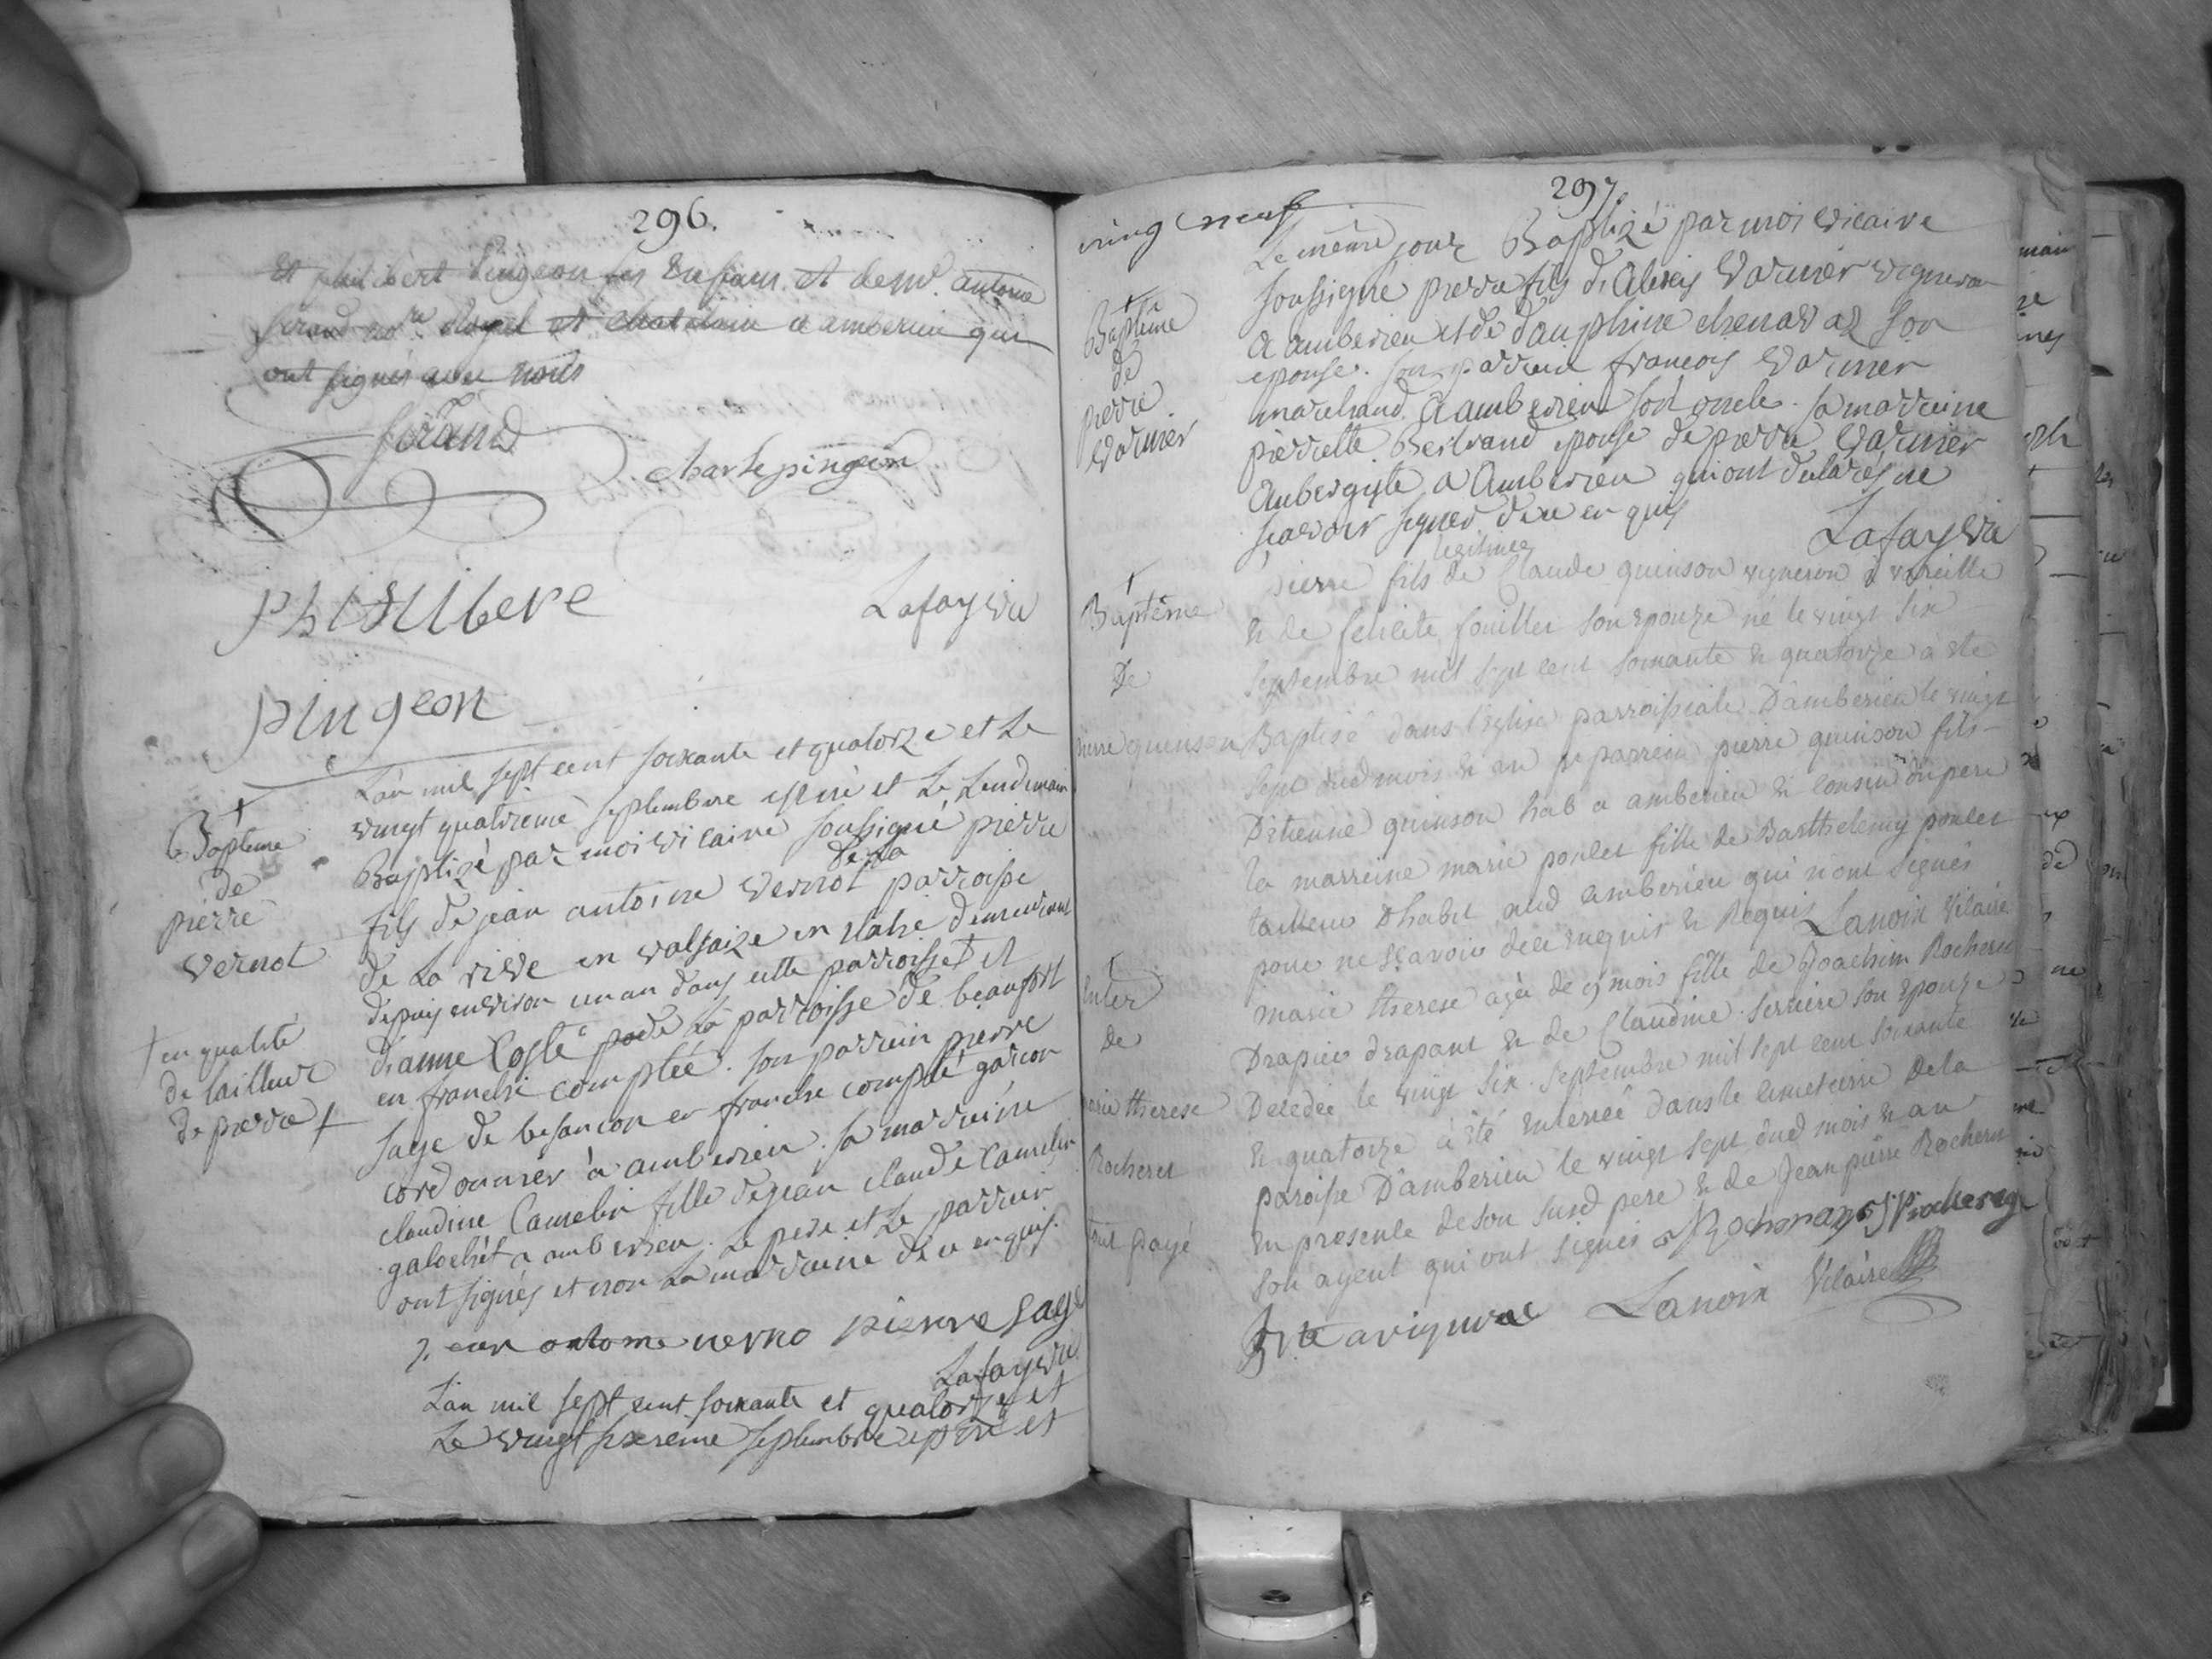 296.
et philibert pingeon ses enfans et de mr. antoine
ferand no.re Royal et chatelain a amberieu qui
ont signés avec nous
ferand
charle pingeon
philibere
Lafay vic
pingeon
L'an mil sept cent soixante et quatorze et Le
vingt quatrieme septembre est né et Le Lendemain
Baptizé par moi vicaire soussigné pierre
de La
fils de jean antoine vernot parroisse
de La rive en valsaize en demeurant
depuis environ un an dans cette parroisse † et
d'anne Coste de La parroisse de beaufort
en franche comptée. son parrein pierre
sage de besancon en franche compté garcon
cordonnier à amberieu. sa marreine
claudine Camelin fille de jean claude Camelin
galochét a amberieu. Le pere et Le parrein
ont signés et non La marreine de ce enquis.
Bapteme
de
pierre
vernot
† en qualité
de tailleur
de pierre †
jean antome verno pierre sage
Lafay vic
L'an mil sept cent soixante et quatorze et
Le vingt sixieme septembre est né et
297.
vingt neuf
Le même jour Baptizé par moi vicaire
soussigné pierre fils d'Alexis Varnier vigneron
a amberieu et de dauphine chenavaz son
epouse. son parrein francois Varnier
marchand a amberieu son oncle. sa marreine
pierrette Bertrand epouse de pierre Varnier
Aubergiste a Amberieu qui ont declarés ne
scavoir signer de ce enquis
Lafay vic
Baptême
de
pierre
Varnier
legitime
pierre fils de Claude quinson vigneron à vareille
& de felicite fouillet son epouze né le vingt six
septembre mil sept cent soixante & quatorze à ete
Baptisé dans l'eglise parroissiale D'amberieu le vingt
sept dud mois & an le parrein pierre quinson fils
D'etienne quinson hab a amberieu & cousin du pere
la marreine marie poulet fille de Barthelemy poulet
tailleur D'habit aud amberieu qui n'ont signés
pour ne sçavoir de ce enquis & Requis Lanoix Vicaire
Baptême
De
pierre quinson
marie therese agée de 9 mois fille de Joachim Rocheret
Drapier drapant & de Claudine Serriere son epouze
Decedée le vingt six septembre mil sept cent soixante
& quatorze à été enterrée dans le cimetierre de la
paroisse D'amberieu le vingt sept dud mois & an
en presence de son susd pere & de Jean pierre Rocheret
son ayeul qui ont signés Rocheray J Rocheray
Enter
de
marie therese
Rocheret
tout payé
Lanoix Vicaire